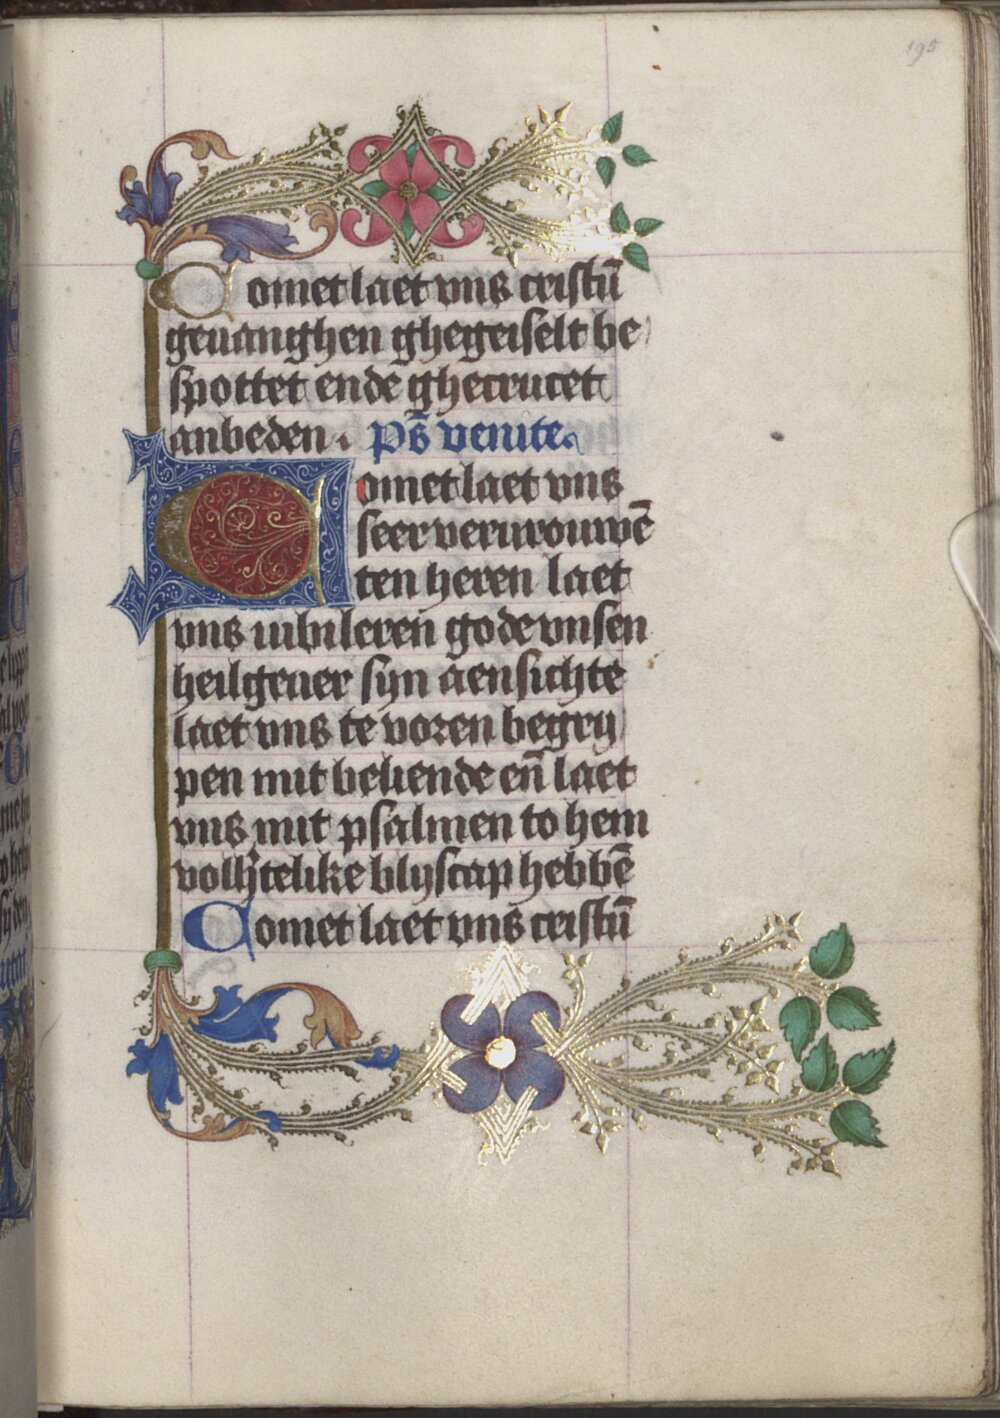 195
Comet laet vns cristū
geuanghen ghegeiselt be
spottet ende ghecrucet
anbeden. ps̄ venite.
Comet laet vns
seer vervrouwē
ten heren laet
vns iubileren gode vnsen
heilgeuer syn aensichte
laet vns te voren begrij
pen mit beliende en̄ laet
vns mit psalmen to hem
vollijtelike blijscap hebbē
Comet laet vns cristū